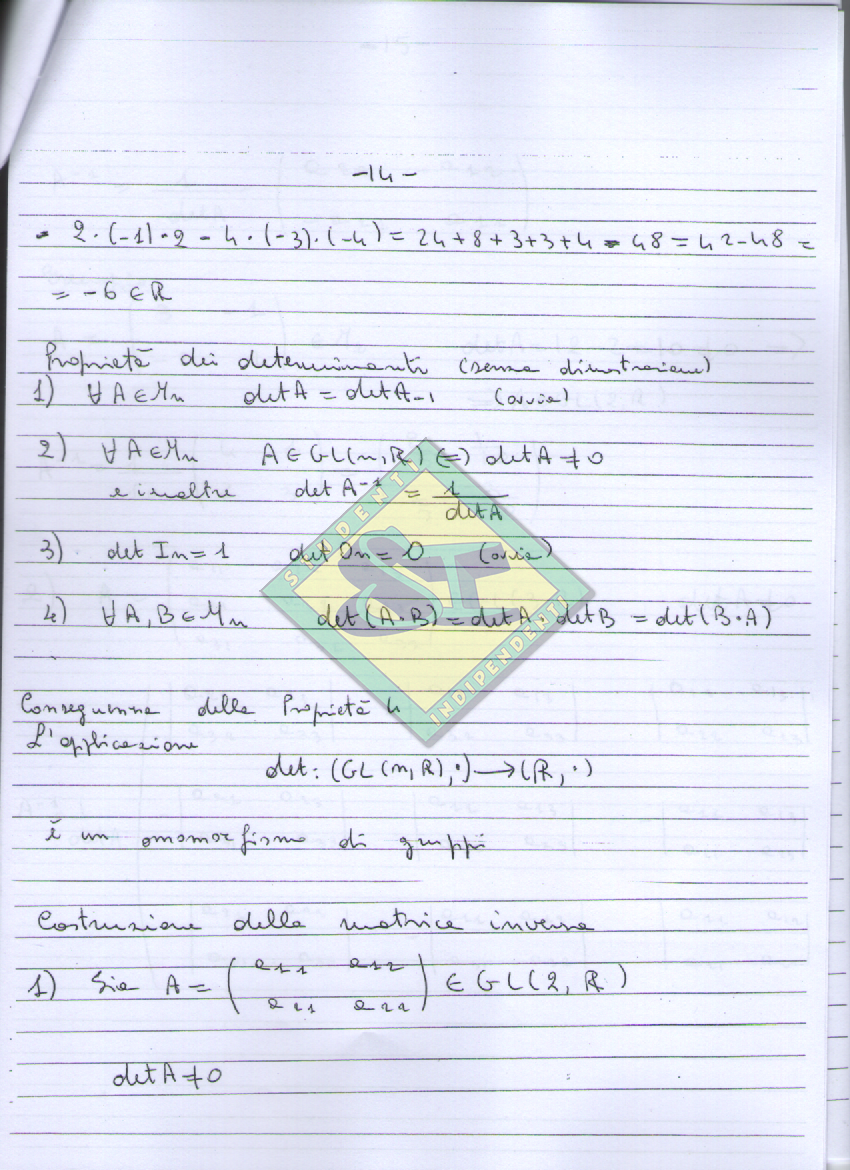 -14-
- 2·(-1)·2 - 4·(-3)·(-4) = 24+8+3+3+4 - 48 = 42-48 =
= -6 ∈ R
Proprietà dei determinanti (senza dimostrazione)
1) ∀ A ∈ Mn detA = detA-1 (ovvia)
2) ∀ A ∈ Mn A ∈ GL(n, R) (=) det A ≠ 0
e inoltre det A⁻¹ = 1/detA
3) det In = 1 det On = 0 (ovvia)
4) ∀ A, B ∈ Mn det(A·B) = detA · detB = det(B·A)
STUDENTI
ST
INDIPENDENTI
Conseguenza della Proprietà 4
L'applicazione
det: (GL(n, R), ·) → (R, ·)
è un omomorfismo di gruppi
Costruzione della matrice inversa
1) Sia A = (a11 a12
a21 a22) ∈ GL(2, R)
det A ≠ 0